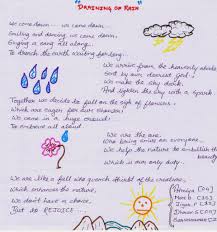 DARINING OF RAIN
We come down... we come down...
Smiling and dancing we come down.
Singing a song all along
To drench the earth waiting for long.
We arrive from the heavenly abode
Sent by our dearest god
We make the sky dark
And lighten the sky with a spark.
Together we decide to fall on the sight of flowers
Which are eager for our showers
We came in a huge
To embrace all about
We are the one
Who bring smile on everyone
We help the nature to establish the beauty
Which is our only duty
We are like a fall who quench thirst of the creature
Which enhances the nature
We don't have a choice,
But to REJOICE...